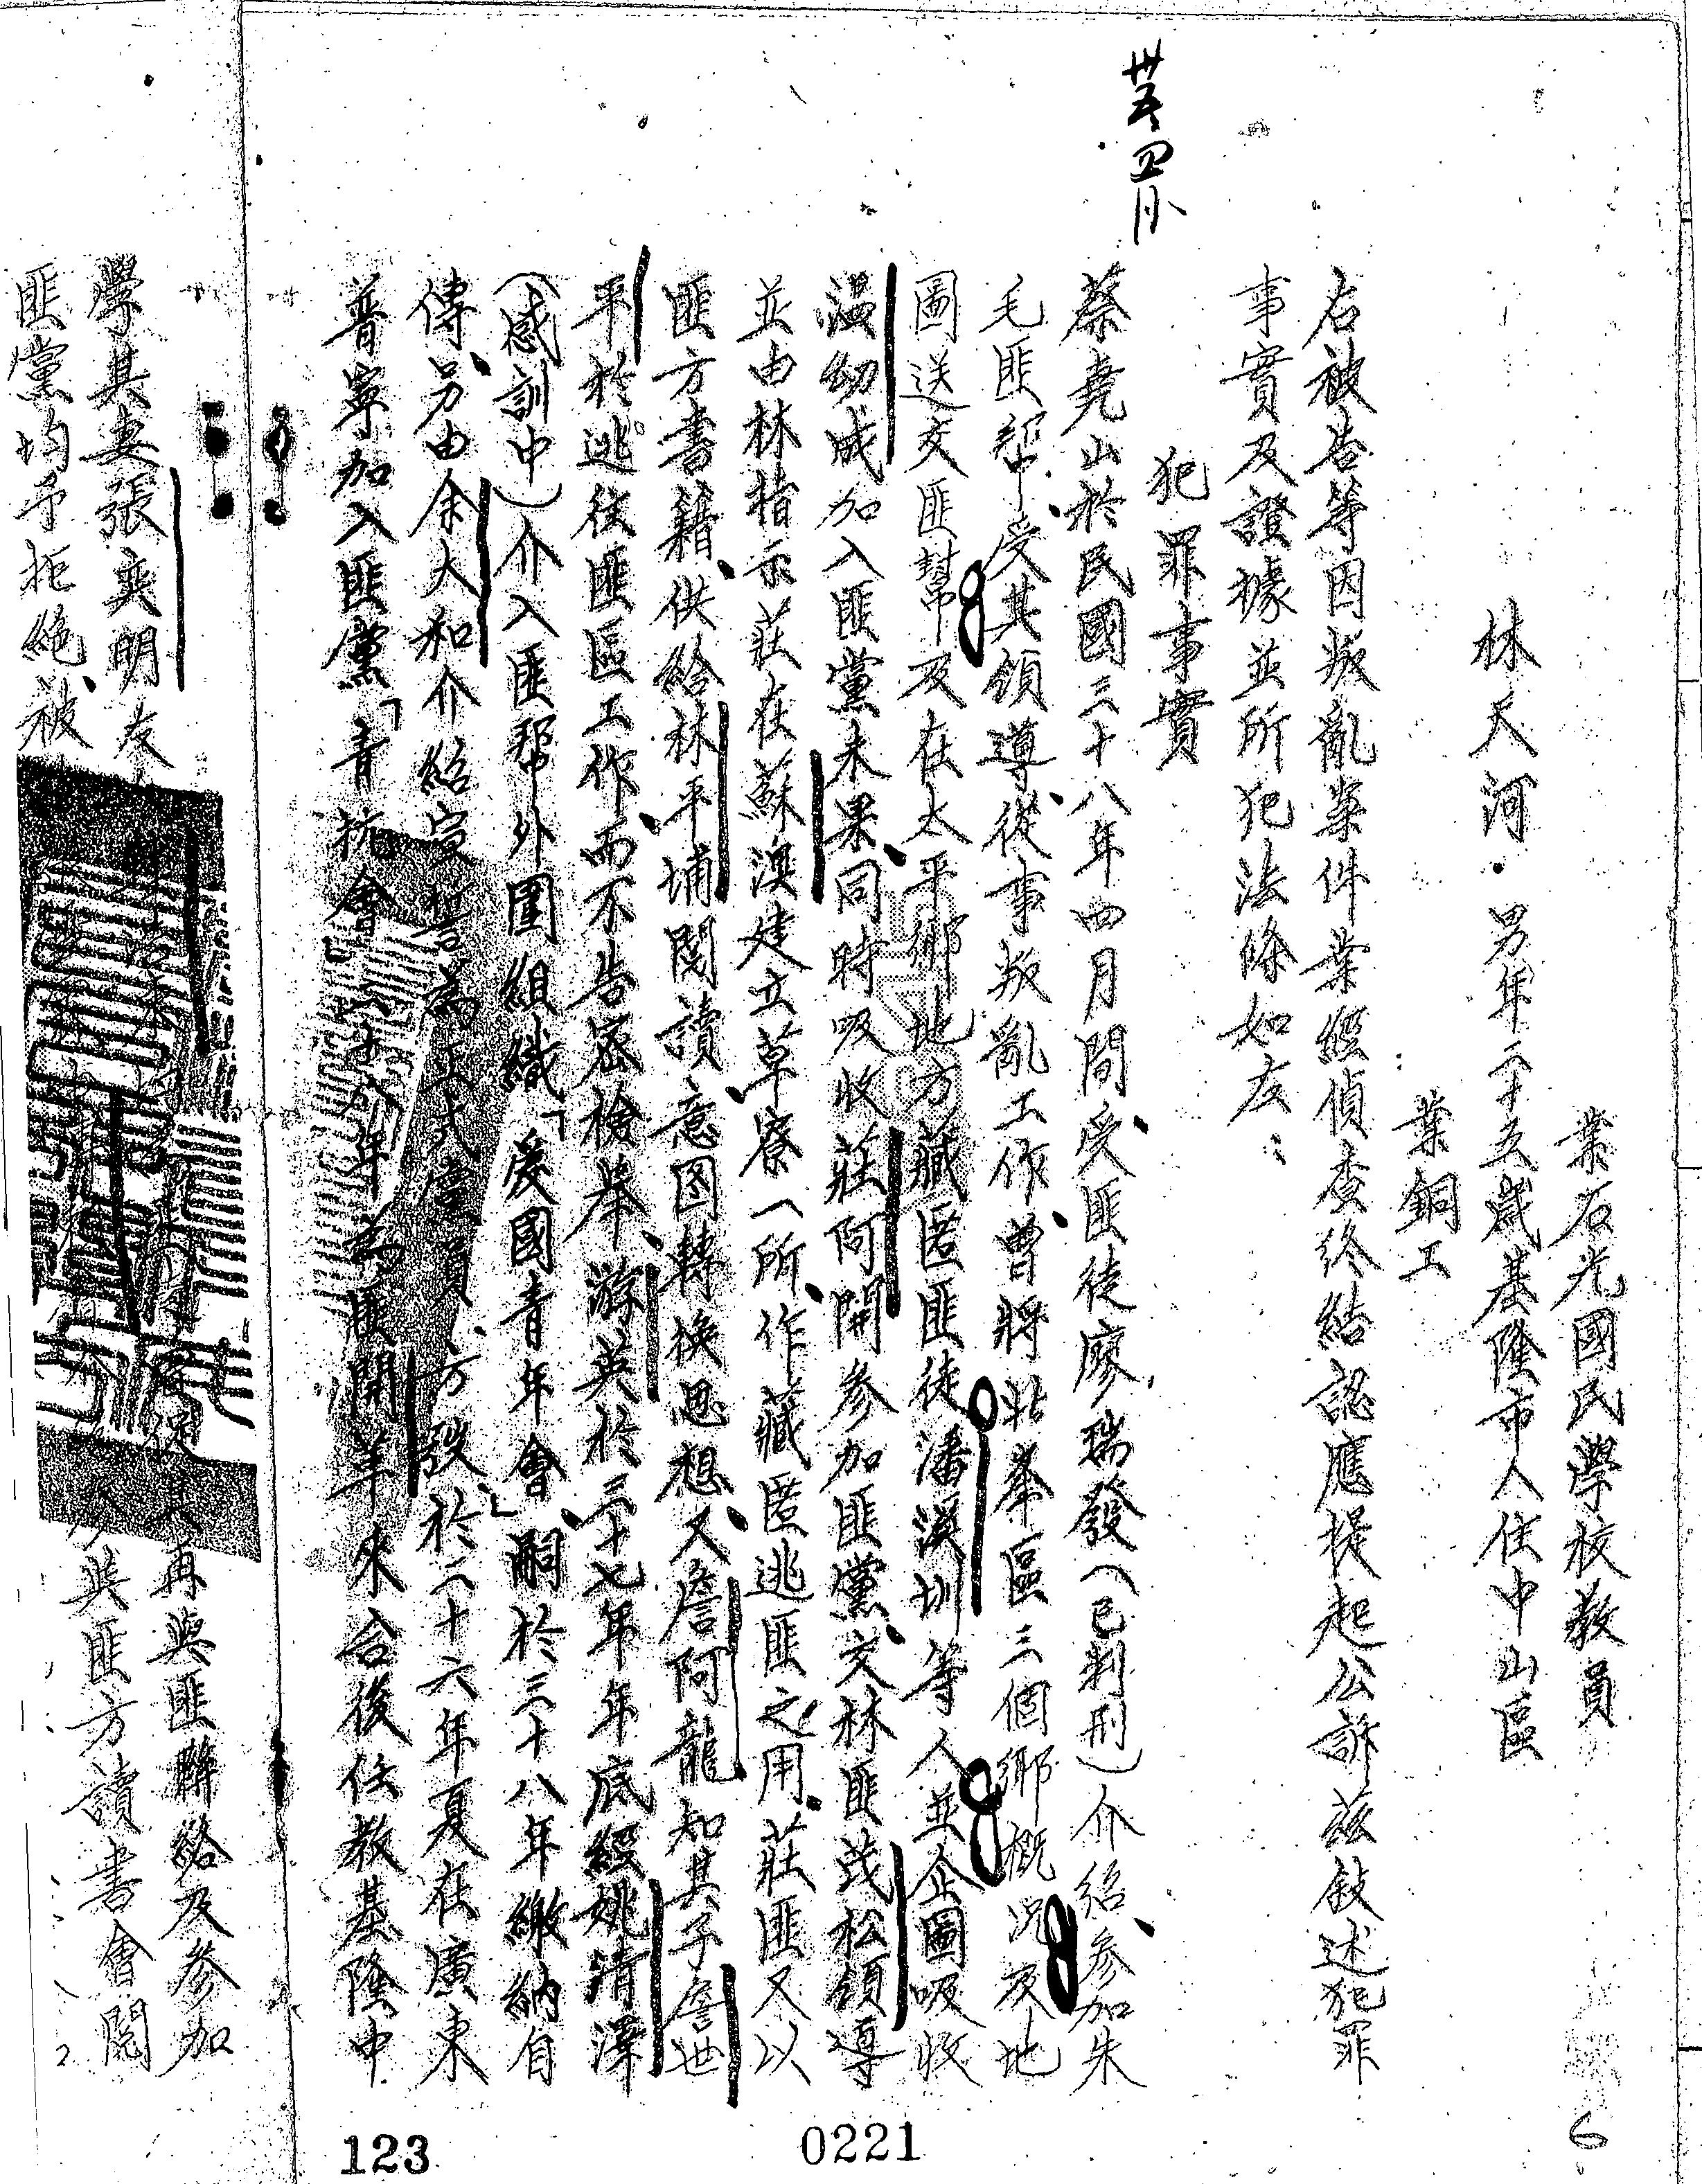 業石光國民學校教員
林天河 男年二十五歲基隆市人住中山區
業銅工
右被告等因叛亂案件業經偵查終結認應提起公訴茲敍述犯罪
事實及證據並所犯法條如左：
犯罪事實
蔡堯山於民國三十八年四月間受匪徒廖瑞發（已判刑）介紹參加朱
毛匪帮受其領導從事叛亂工作曾將北峯區三個鄉概況及地
圖送交匪幫及在太平鄉地方藏匿匪徒潘溪圳等人並企圖吸收
溫幼成加入匪黨未果同時吸收莊阿開參加匪黨交林匪茂松領導
並由林指示莊在蘇澳建立草寮一所作藏匿逃匪之用莊匪又以
匪方書籍供給林平埔閱讀意图轉換思想又詹阿龍知其子詹世
平於逃往匪區工作而不告密檢舉游英於三十七年年底經姚清澤
（感訓中）介入匪帮外圍組織「愛國青年會」嗣於三十八年繳納自
傳另由余大和介紹宣誓為正式党員方弢於二十六年夏在廣東
普寧加入匪黨「青抗會」八年為匪開革來台後任教基隆中
再與匪聯絡及參加
學其妻張奕明友 與匪方讀書會閱
匪黨均予拒絕被
卅五 四
123
0221
6